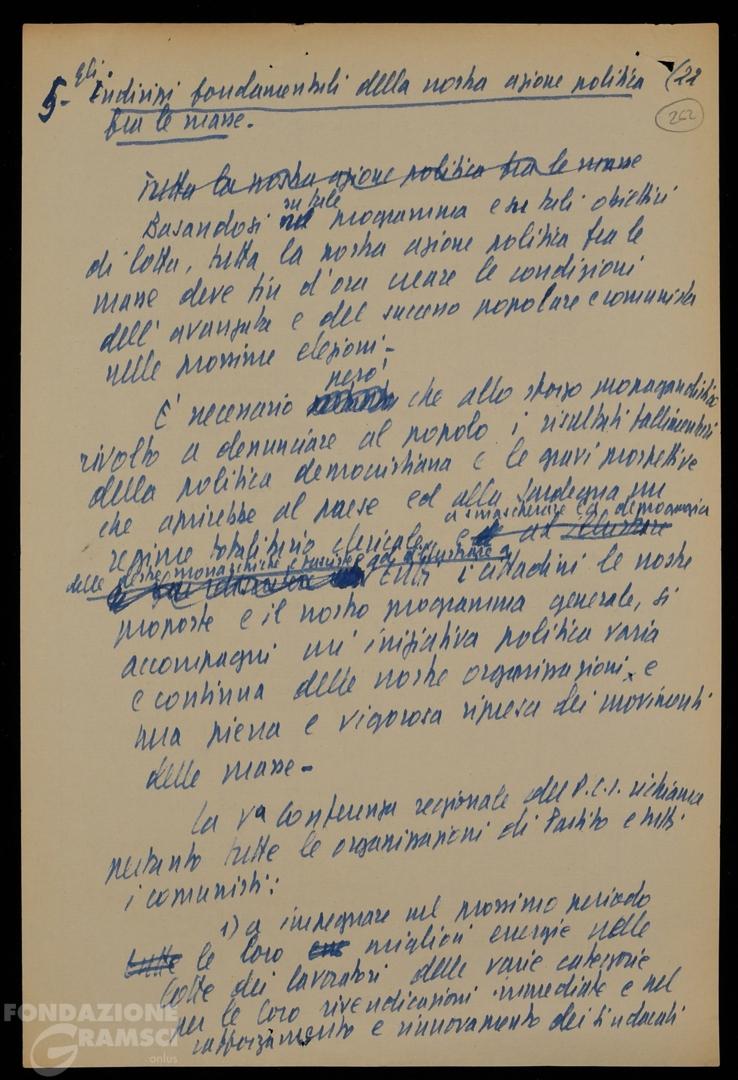 5- gli Indirizzi fondamentali della nostra azione politica (22
tra le masse.
262
Tutta la nostra azione politica tra le masse
Basandosi su tale programma e su tali obiettivi
di lotta, tutta la nostra azione politica tra le
masse deve fin d'ora creare le condizioni
dell'avanzata e del successo popolare e comunista
nelle prossime elezioni-
E' necessario però che allo sforzo propagandistico
rivolto a denunciare al popolo i risultati fallimentari
della politica democristiana e le gravi prospettive
che aprirebbe al paese ed alla Sardegna un
a smascherare la demagogia
regime totalitario clericale, e ad illustrare
delle destre monarchiche e fasciste, ad illustrare a
tutti i cittadini le nostre
proposte e il nostro programma generale, si
accompagni un'iniziativa politica varia
e continua delle nostre organizzazioni e
una piena e vigorosa ripresa dei movimenti
delle masse-
La Va Conferenza regionale del P.C.I. richiama
pertanto tutte le organizzazioni di Partito e tutti
i comunisti:
1) a impegnare nel prossimo periodo
tutte le loro migliori energie nelle
lotte dei lavoratori delle varie categorie
per le loro rivendicazioni immediate e nel
rafforzamento e rinnovamento dei sindacati
FONDAZIONE
GRAMSCI
onlus